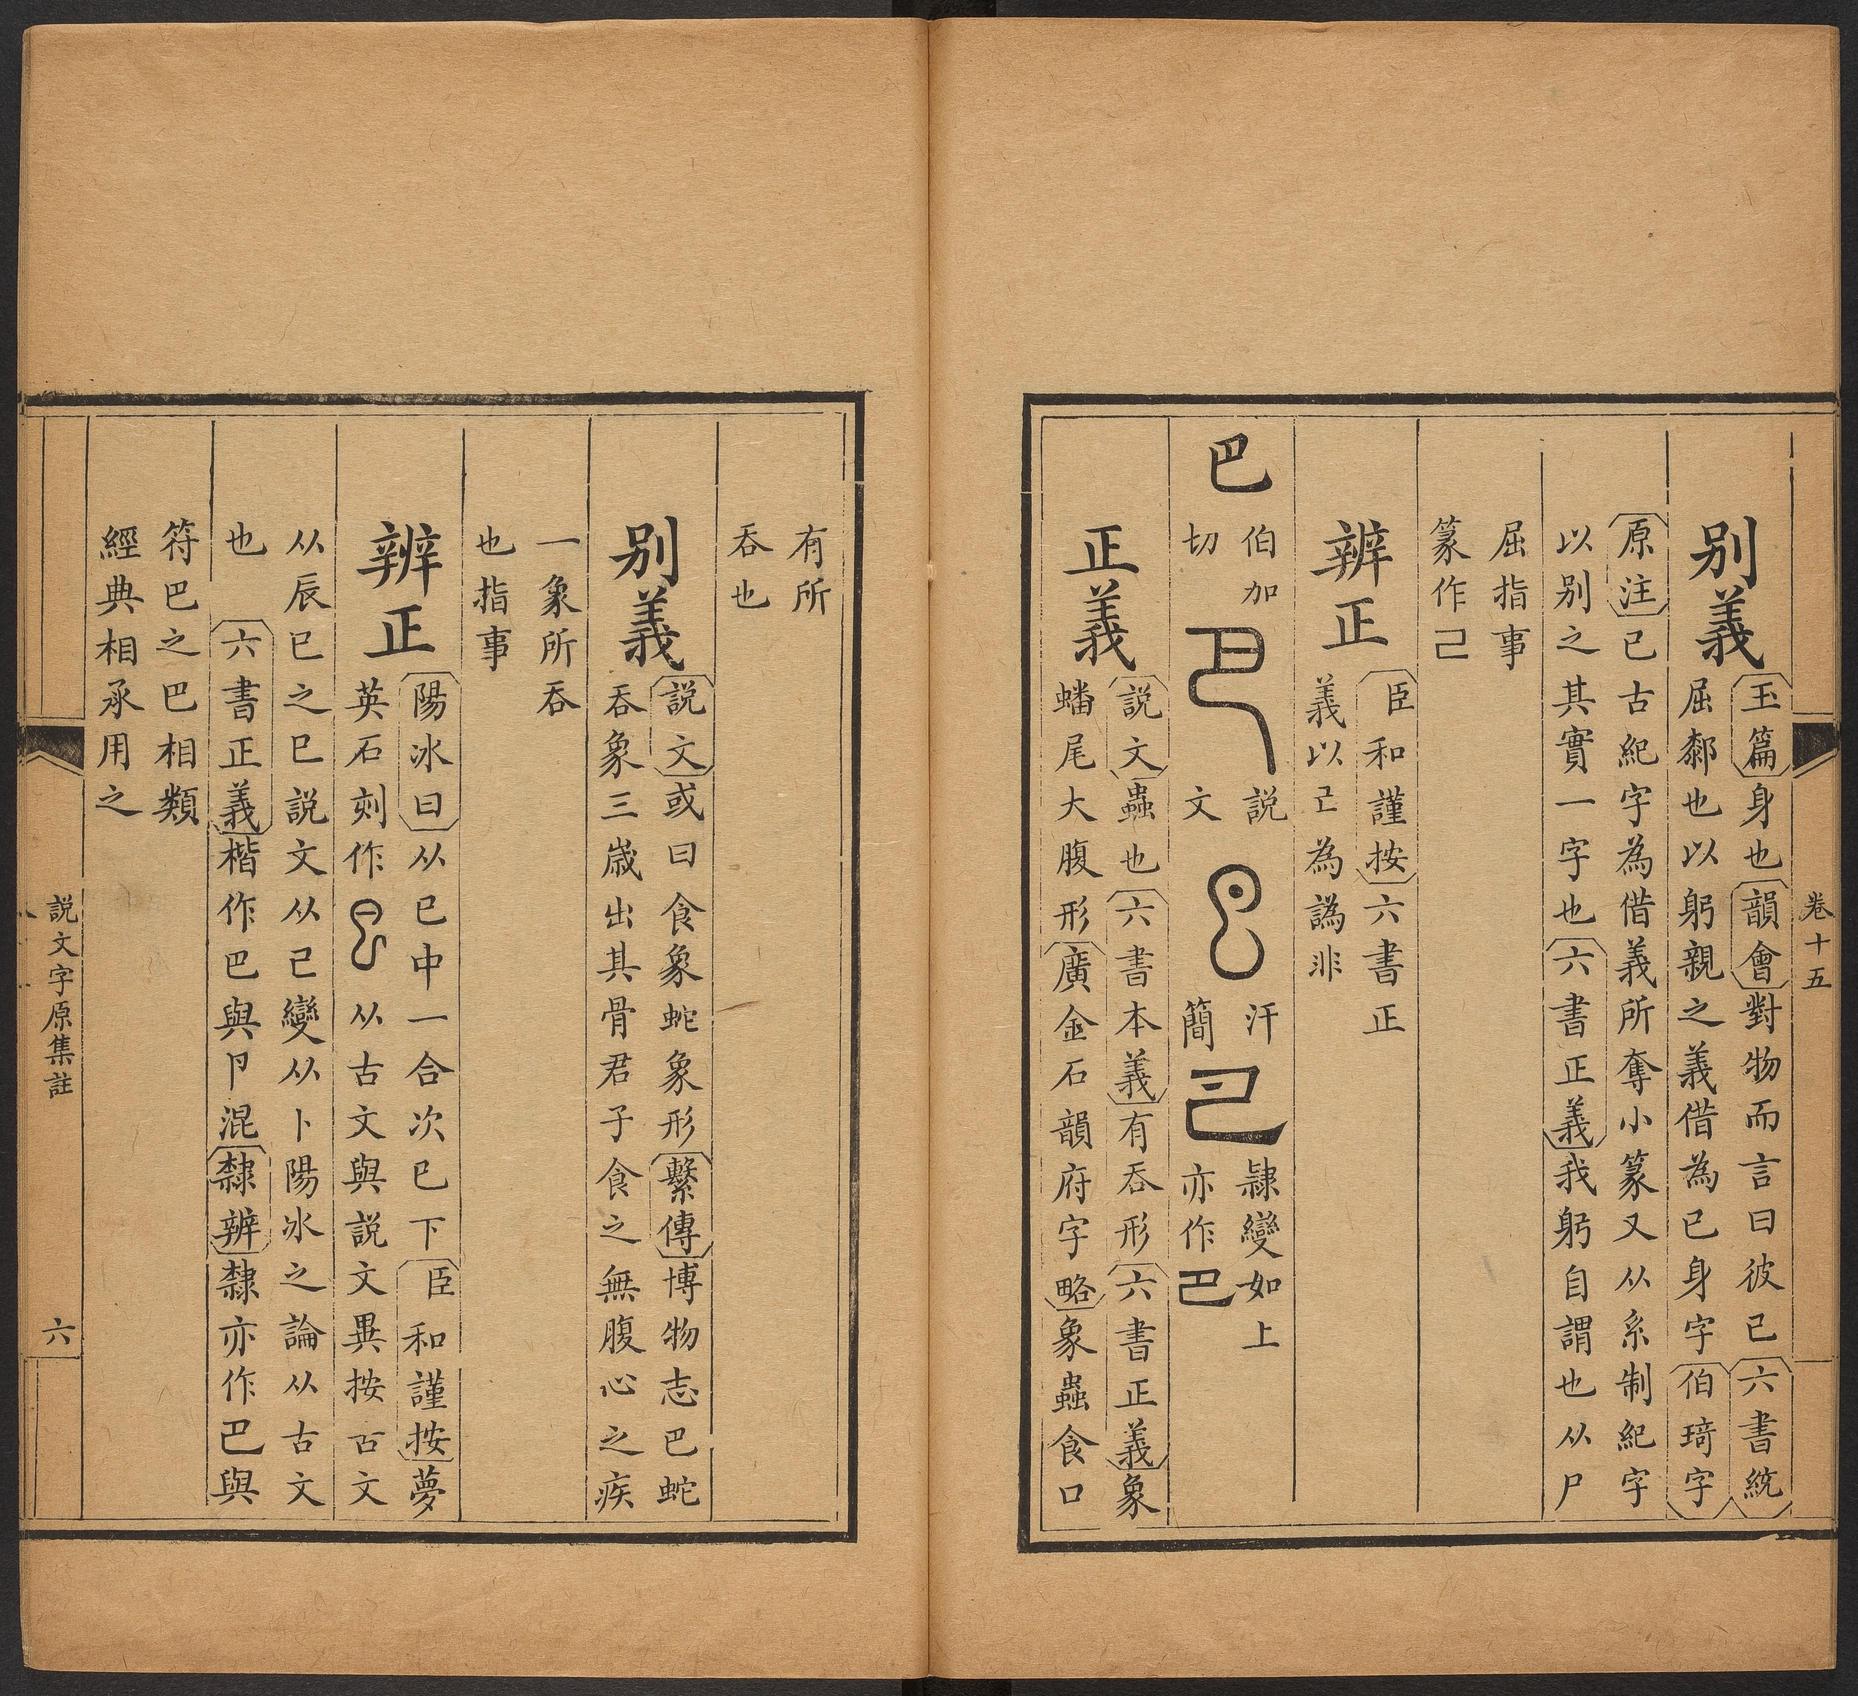 卷十五
別義
玉篇身也韻會對物而言曰彼己六書統
屈䣛也以躬親之義借為己身字伯琦字
原注己古紀字為借義所奪小篆又从糸制紀字
以別之其實一字也六書正義我躬自謂也从尸
屈指事
篆作己
辨正
臣和謹按六書正
義以為譌非
巴
伯加
切
巴
說
文
汗
簡
隸變如上
亦作巴
正義
說文蟲也六書本義有吞形六書正義象
蟠尾大腹形廣金石韻府字略象蟲食口
有所
吞也
別義
說文或曰食象蛇象形繫傳博物志巴蛇
吞象三歲出其骨君子食之無腹心之疾
一象所吞
也指事
辨正
陽冰曰从巳中一合次巳下臣和謹按夢
英石刻作从古文與說文異按古文
从辰巳之巳說文从己變从卜陽冰之論从古文
也六書正義楷作巴與卪混隸辨隸亦作巴與
符巴之巴相類
經典相承用之
說文字原集註
六